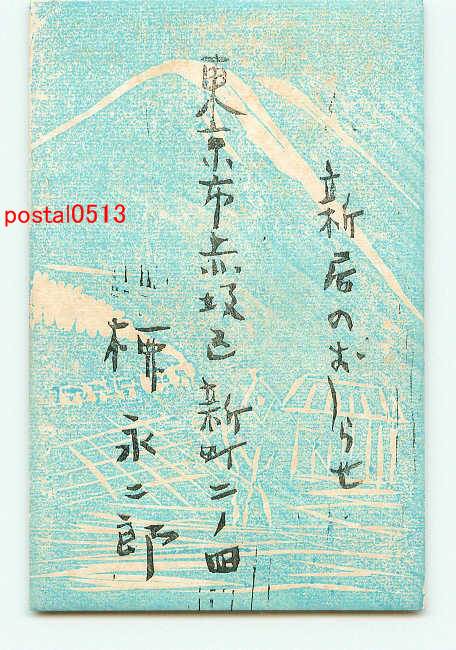 新居のおしらせ
東京市赤坂区新町二ノ四
永二郎
postal0513